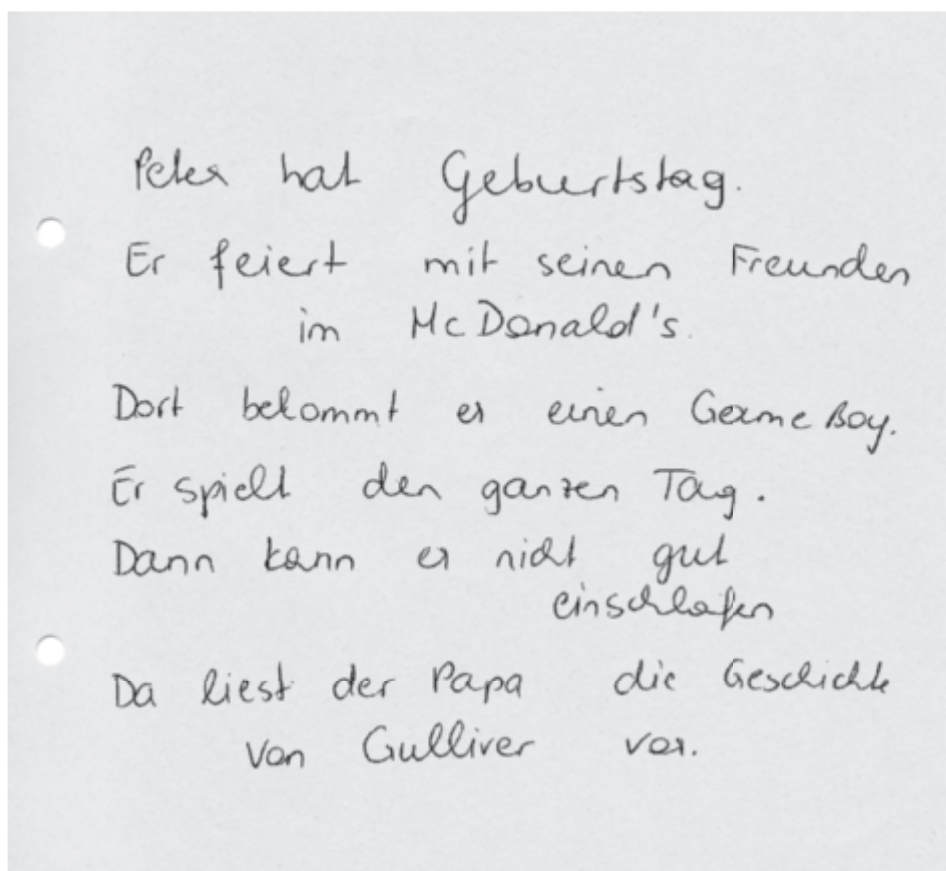 Peter hat Geburtstag.
Er feiert mit seinen Freunden
im McDonald's.
Dort bekommt er einen Game Boy.
Er spielt den ganzen Tag.
Dann kann er nicht gut
einschlafen
Da liest der Papa die Geschichte
von Gulliver vor.